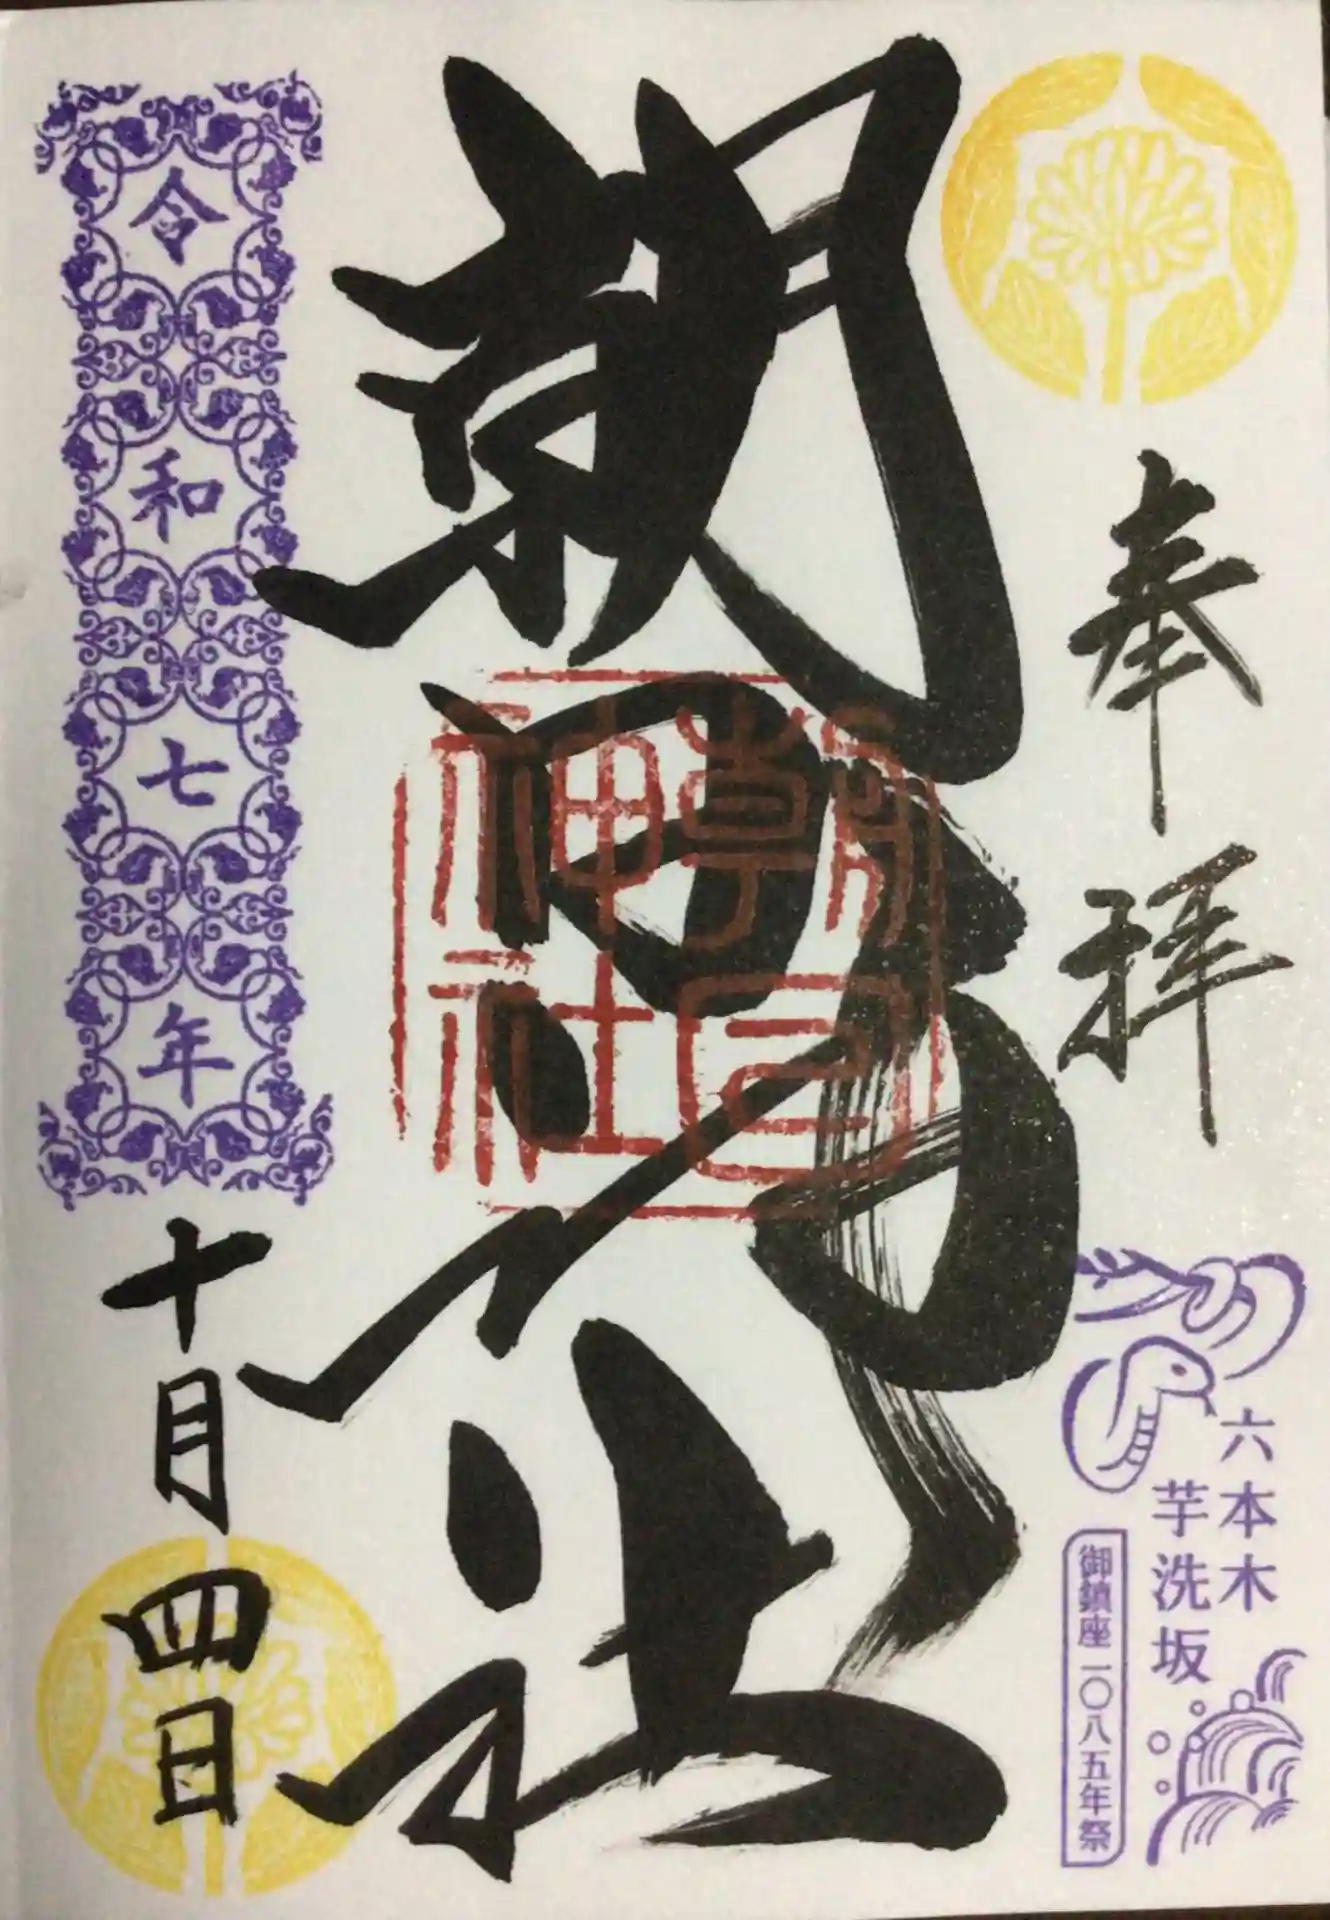 奉拝
六本木
芋洗坂
御鎮座一〇八五年祭
朝日神社
朝日
神社
令和七年
十月四日